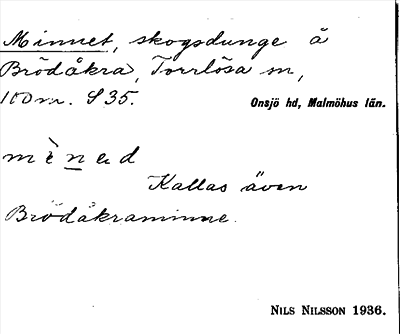 Minnet, skogsdunge å
Brödåkra, Torrlösa sn,
100 m. S 35. Onsjö hd, Malmöhus län.
mènəd
Kallas även
Brödåkraminne.
NILS NILSSON 1936.